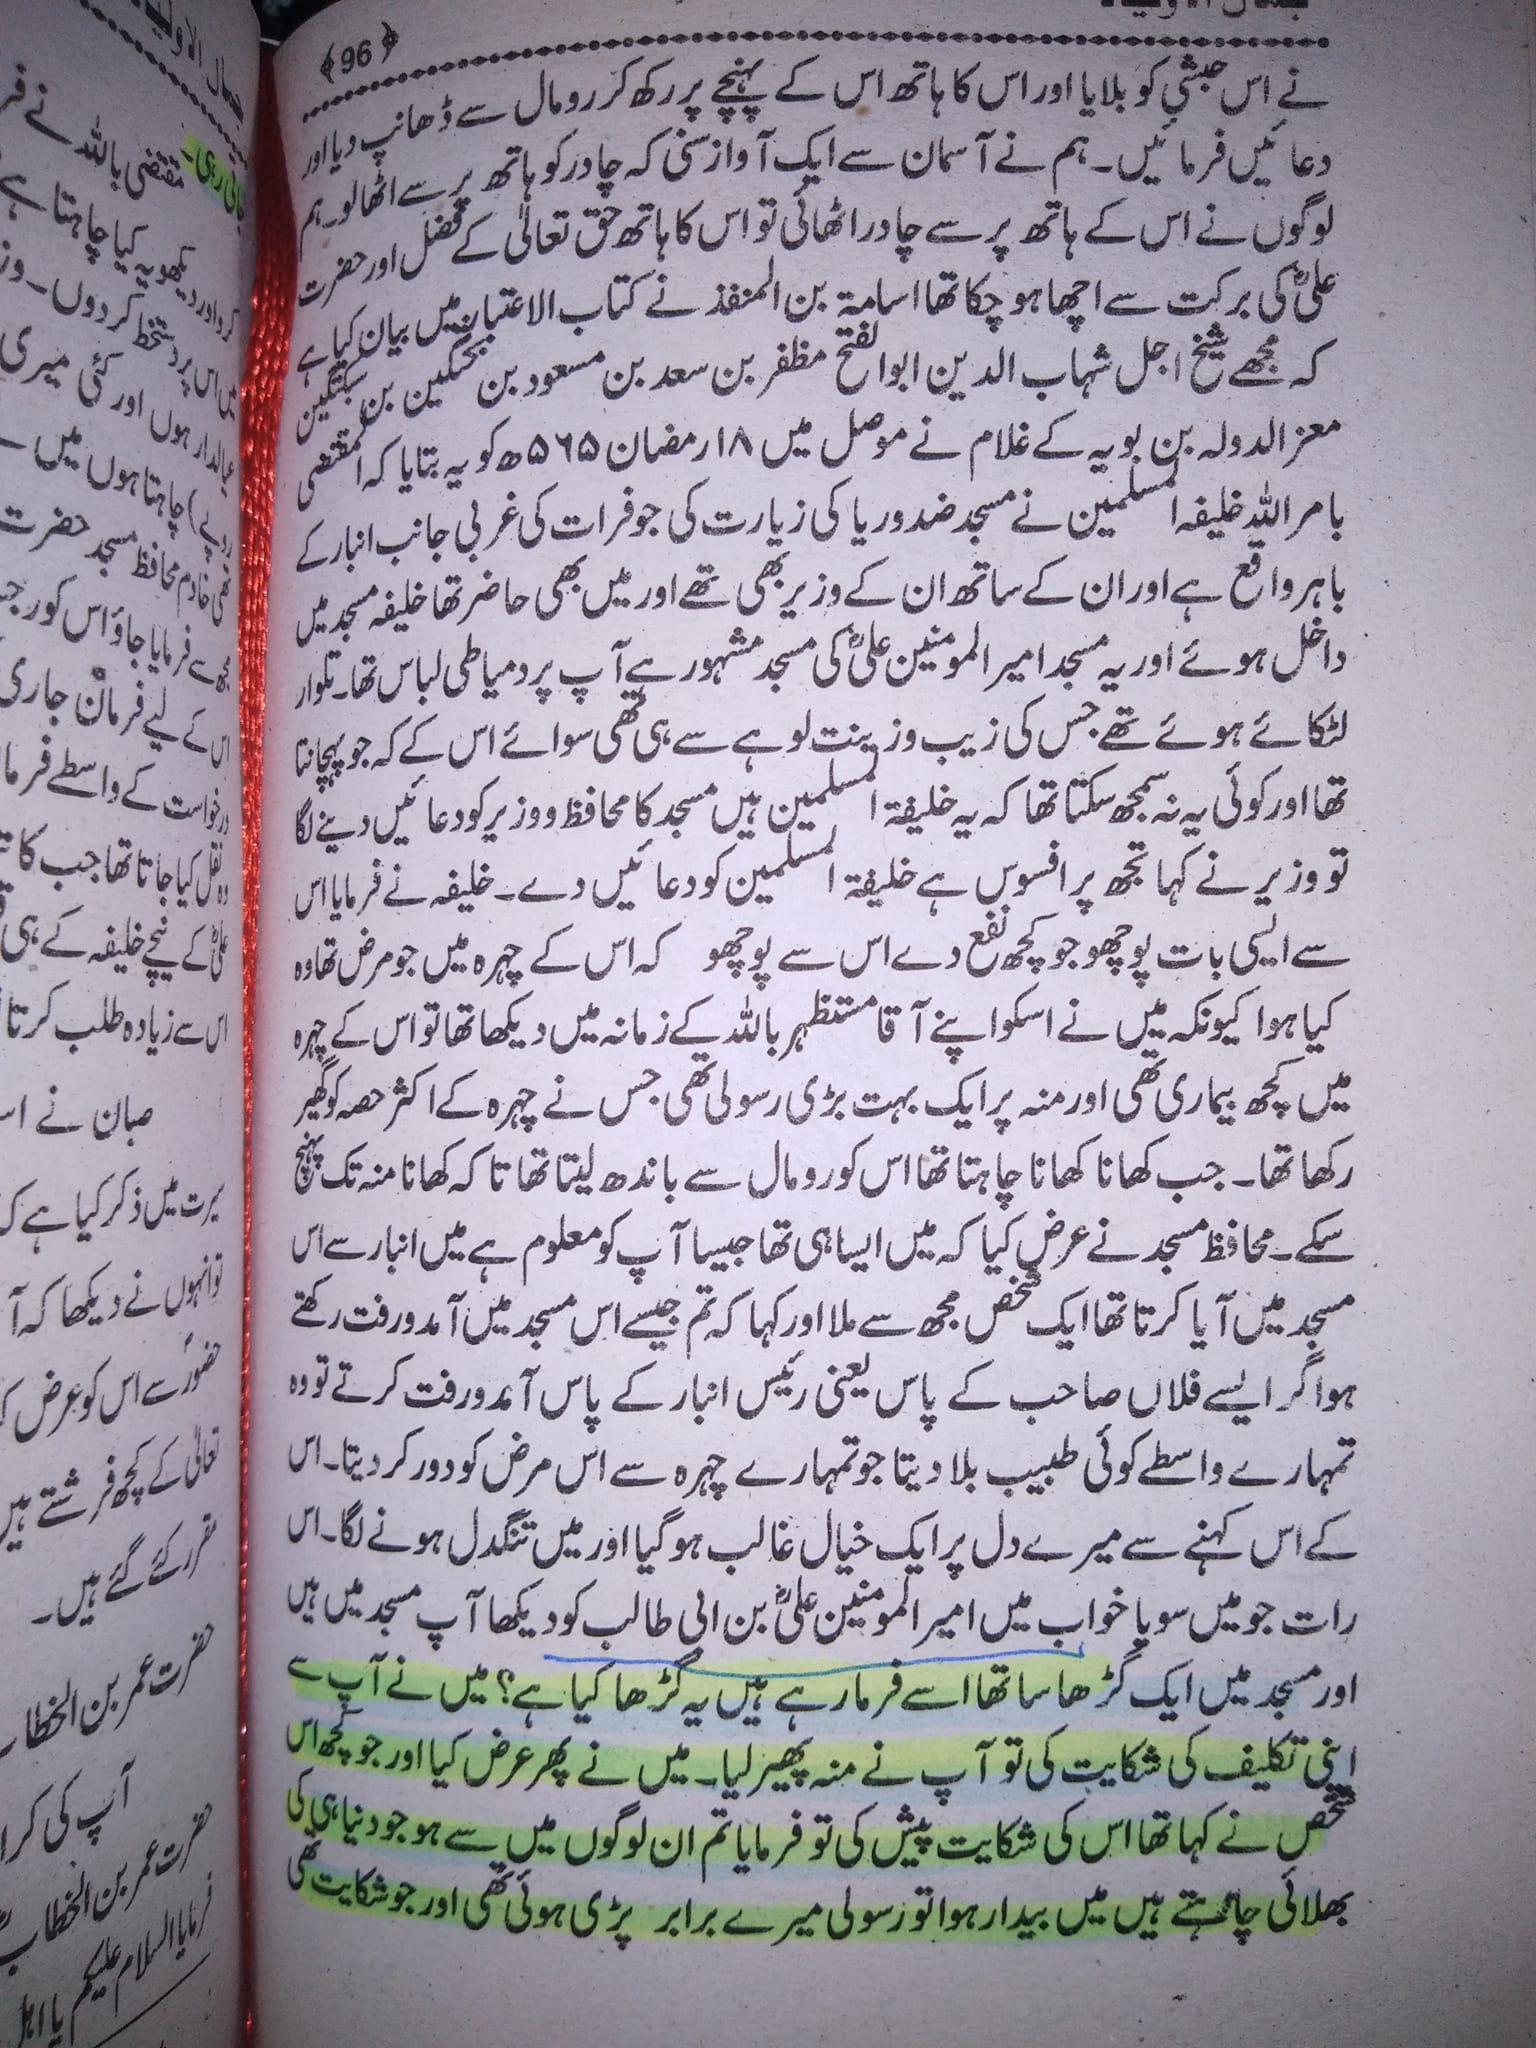 ﴿96﴾
نے اس حبشی کو بلایا اور اس کا ہاتھ اس کے پہنچے پر رکھ کر رومال سے ڈھانپ دیا اور
دعائیں فرمائیں۔ ہم نے آسمان سے ایک آواز سنی کہ چادر کو ہاتھ پر سے اٹھالو۔ ہم
لوگوں نے اس کے ہاتھ پر سے چادر اٹھائی تو اس کا ہاتھ حق تعالیٰ کے فضل اور حضرت
علیؓ کی برکت سے اچھا ہو چکا تھا اسامۃ بن المنفذ نے کتاب الاعتبار میں بیان کیا ہے
کہ مجھے شیخ اجل شہاب الدین ابوالفتح مظفر بن سعد بن مسعود بن بختگین بن سبکتگین
معز الدولہ بن بویہ کے غلام نے موصل میں ۱۸ رمضان ۵۶۵ھ کو یہ بتایا کہ المقتضی
بامر اللہ خلیفۃ المسلمین نے مسجد ضدوریا کی زیارت کی جو فرات کی غربی جانب انبار کے
باہر واقع ہے اور ان کے ساتھ ان کے وزیر بھی تھے اور میں بھی حاضر تھا خلیفہ مسجد میں
داخل ہوئے اور یہ مسجد امیر المومنین علیؓ کی مسجد مشہور ہے آپ پر دمیاطی لباس تھا۔ تلوار
لٹکائے ہوئے تھے جس کی زیب و زینت لوہے سے ہی تھی سوائے اس کے کہ جو پہچانتا
تھا اور کوئی یہ نہ سمجھ سکتا تھا کہ یہ خلیفۃ المسلمین ہیں مسجد کا محافظ و وزیر کو دعائیں دینے لگا
تو وزیر نے کہا تجھ پر افسوس ہے خلیفۃ المسلمین کو دعائیں دے۔ خلیفہ نے فرمایا اس
سے ایسی بات پوچھو جو کچھ نفع دے اس سے پوچھو کہ اس کے چہرہ میں جو مرض تھا وہ
کیا ہوا کیونکہ میں نے اسکو اپنے آقا مستظہر باللہ کے زمانہ میں دیکھا تھا تو اس کے چہرہ
میں کچھ بیماری تھی اور منہ پر ایک بہت بڑی رسولی تھی جس نے چہرہ کے اکثر حصہ کو گھیر
رکھا تھا۔ جب کھانا کھانا چاہتا تھا اس کو رومال سے باندھ لیتا تھا تا کہ کھانا منہ تک پہنچ
سکے۔ محافظ مسجد نے عرض کیا کہ میں ایسا ہی تھا جیسا آپ کو معلوم ہے میں انبار سے اس
مسجد میں آیا کرتا تھا ایک شخص مجھ سے ملا اور کہا کہ تم جیسے اس مسجد میں آمدورفت رکھتے
ہو اگر ایسے فلاں صاحب کے پاس یعنی رئیس انبار کے پاس آمدورفت کرتے تو وہ
تمہارے واسطے کوئی طبیب بلا دیتا جو تمہارے چہرہ سے اس مرض کو دور کر دیتا۔ اس
کے اس کہنے سے میرے دل پر ایک خیال غالب ہو گیا اور میں تنگدل ہونے لگا۔ اس
رات جو میں سویا خواب میں امیر المومنین علیؓ بن ابی طالب کو دیکھا آپ مسجد میں ہیں
اور مسجد میں ایک گڑھا سا تھا اسے فرما رہے ہیں یہ گڑھا کیا ہے؟ میں نے آپ سے
اپنی تکلیف کی شکایت کی تو آپ نے منہ پھیر لیا۔ میں نے پھر عرض کیا اور جو کچھ اس
شخص نے کہا تھا اس کی شکایت پیش کی تو فرمایا تم ان لوگوں میں سے ہو جو دنیا ہی کی
بھلائی چاہتے ہیں میں بیدار ہوا تو رسولی میرے برابر پڑی ہوئی تھی اور جو شکایت تھی
جاتی رہی۔ مقتضی باللہ نے
کرو اور دیکھو یہ کیا چاہتا ہے
میں اس پر دستخط کردوں۔
عیالدار ہوں اور کئی میری
چاہتا ہوں میں
خادم محافظ مسجد حضرت
مجھ سے فرمایا جاؤ اس کو
اس کے لیے فرمان جاری
درخواست کے واسطے
وہ نقل کیا جاتا تھا جب
علیؓ کے نیچے خلیفہ کے ہی
اس سے زیادہ طلب کرتا
صبان نے
سیرت میں ذکر کیا ہے
تو انہوں نے دیکھا کہ
حضورؐ سے اس کو عرض
تعالیٰ کے کچھ فرشتے ہیں
مقرر کئے گئے ہیں۔
حضرت عمر بن الخطاب
آپ کی
حضرت عمر بن الخطاب
فرمایا السلام علیکم یا اہل